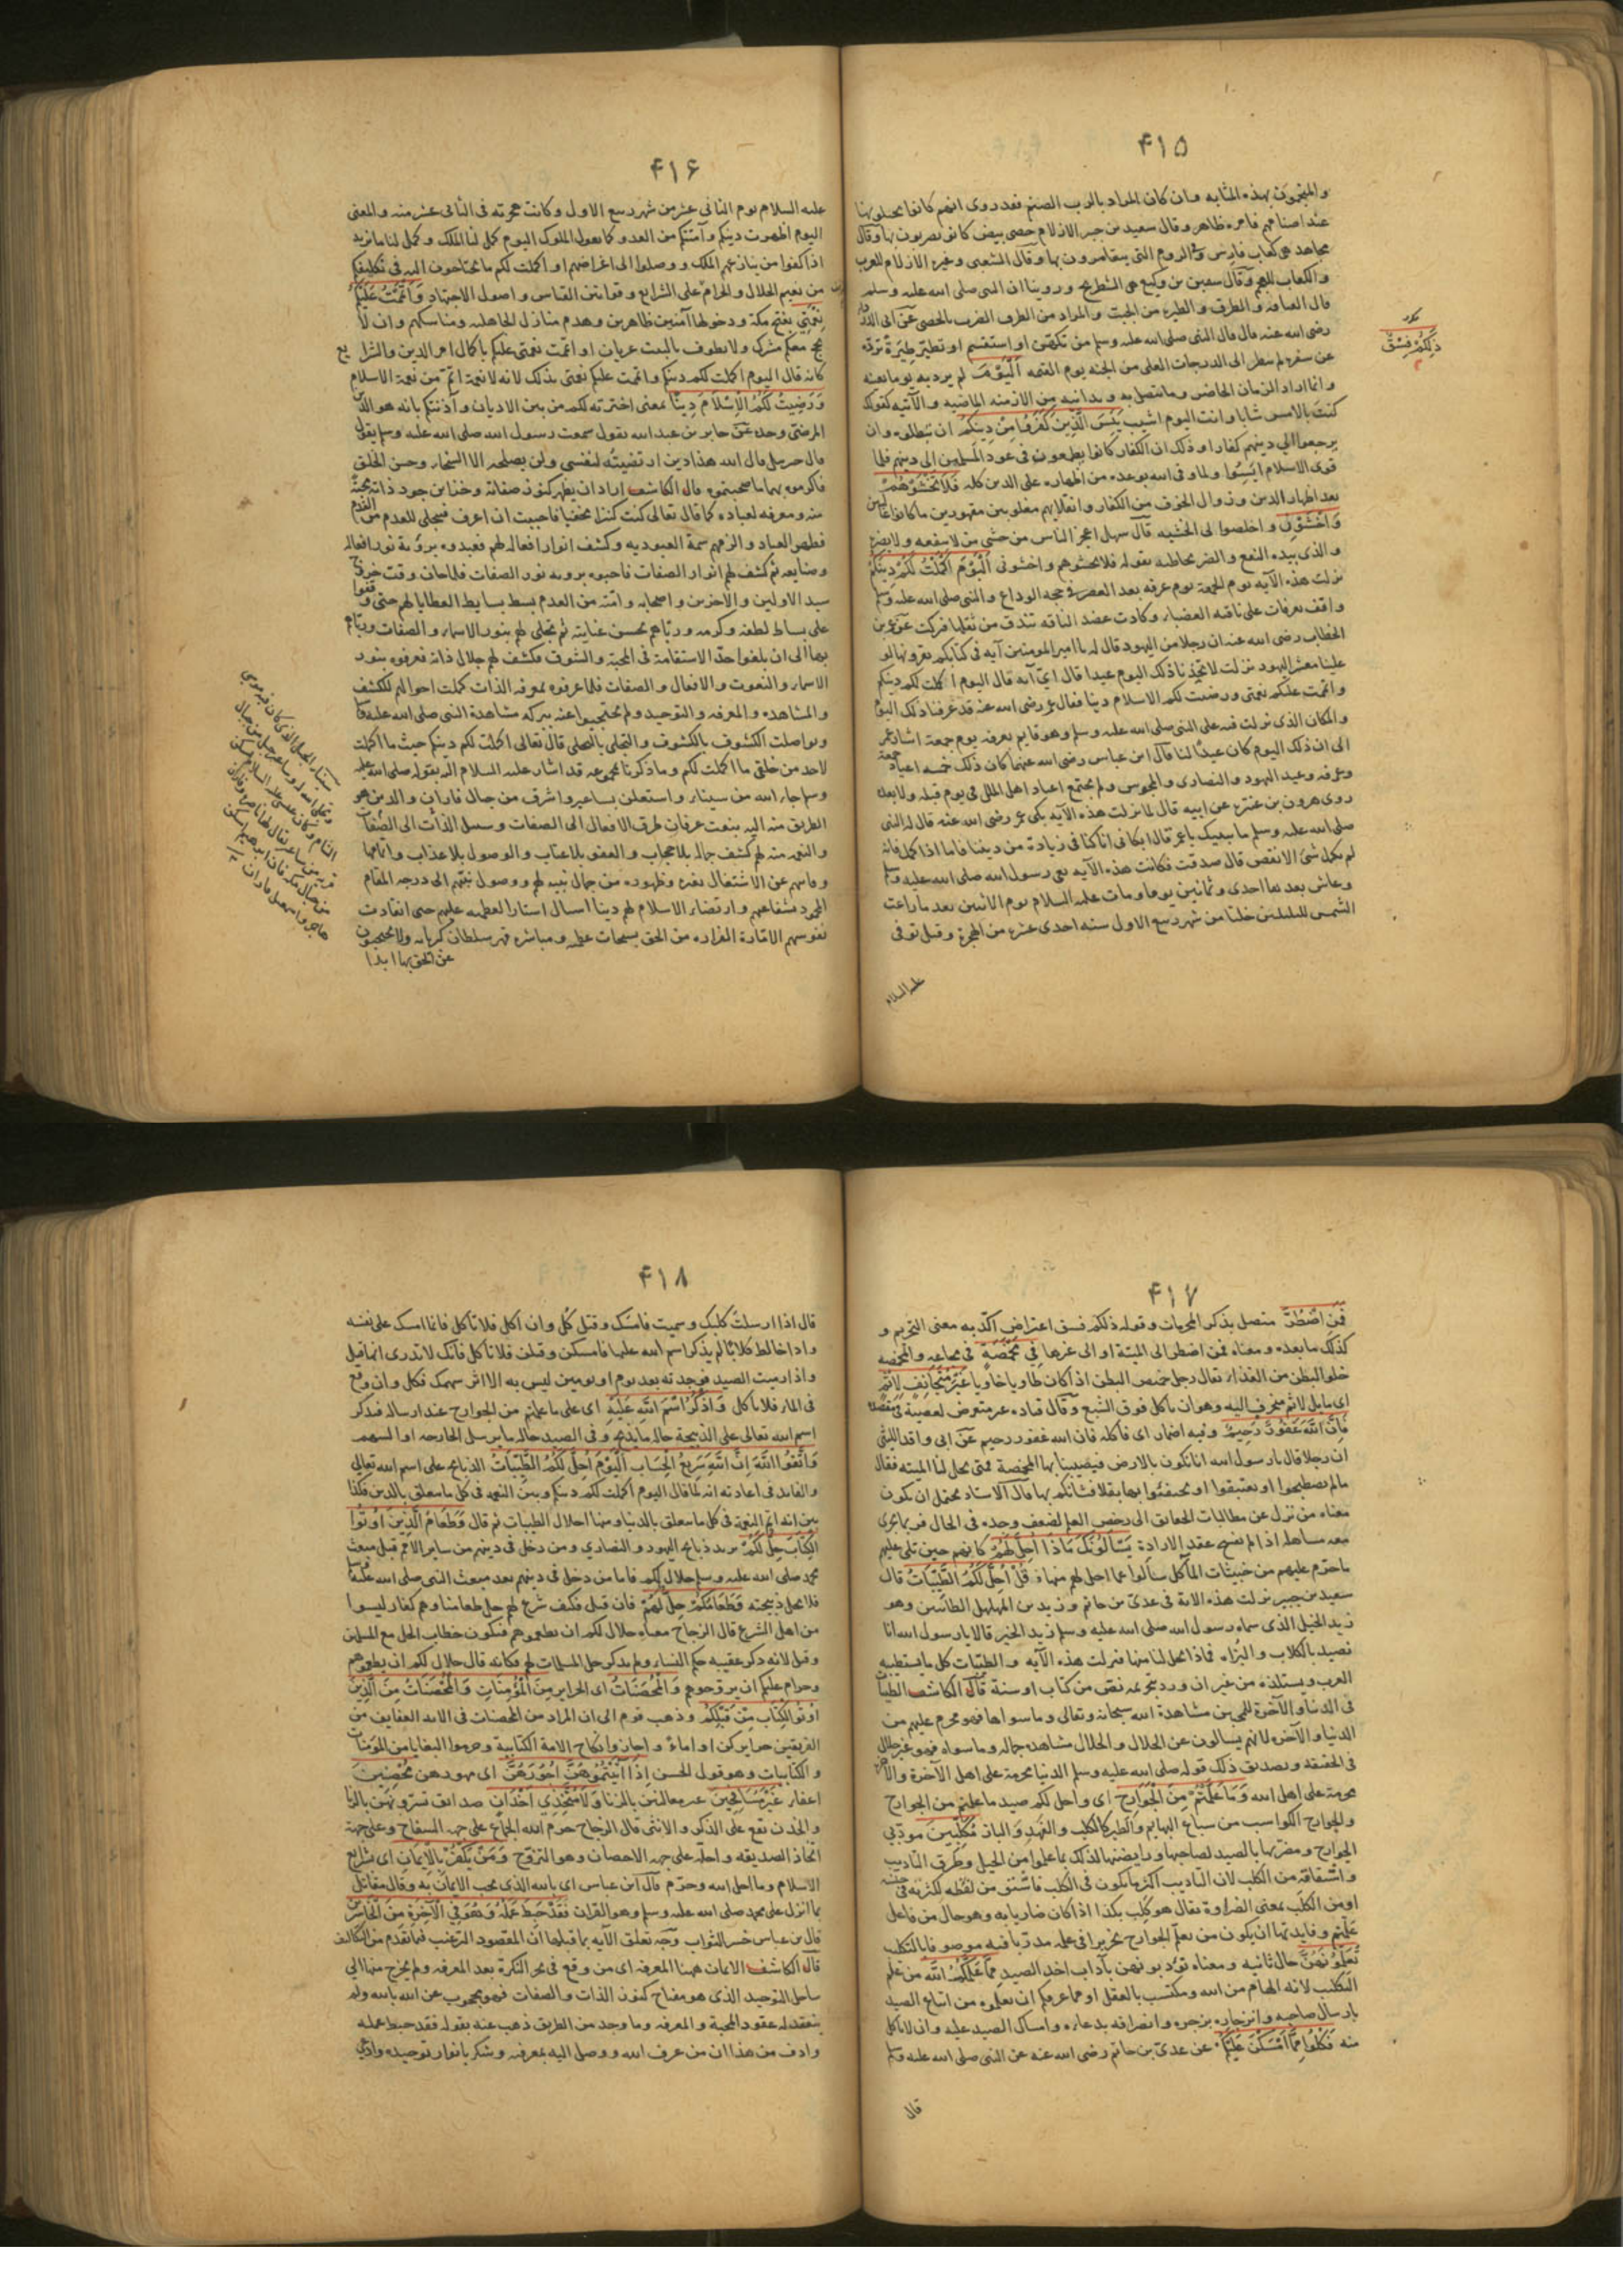 ۴۱۵
والمنجمون بهذه المثابه وان كان المراد بالرب الصنم فقد روى انهم كانوا يجيلونها
عند اصنامهم فامره ظاهر وقال سعيد بن جبير الازلام حصى بيض كانوا يضربون بها وقال
مجاهد هى كعاب فارس والروم التى يتقامرون بها وقال الشعبى وغيره الازلام للعرب
والكعاب للعجم وقال سفين بن وكيع هى الشطرنج وروينا ان النبى صلى الله عليه وسلم
قال العيافة والطرق والطيرة من الجبت والمراد من الطرق الضرب بالحصى عن ابى الدرداء
رضى الله عنه قال قال النبى صلى الله عليه وسلم من تكهّن او استقسم او تطيّر طِيَرَةً تردّه
عن سفره لم ينظر الى الدرجات العلى من الجنة يوم القيمه اَلْيَوْمَ لم يرد به يوما بعينه
وانما اراد الزمان الحاضر وما يتصل به ويدانيه من الازمنه الماضيه والآتيه كقولك
كنت بالامس شابا وانت اليوم اشيب يَئِسَ الَّذِينَ كَفَرُوا مِنْ دِينِكُمْ ان تبطلوه وان
يرجعوا الى دينهم كفارا وذلك ان الكفار كانوا يطمعون فى عود المسلمين الى دينهم فلما
قوى الاسلام ايسوا ولما وفى الله بوعده من اظهاره على الدين كله فَلَا تَخْشَوْهُمْ
بعد اظهار الدين وزوال الخوف من الكفار وانقلابهم مغلوبين مقهورين ما كانوا غالبين
وَاخْشَوْنِ واخلصوا لى الخشيه قال سهل اعجز الناس من خشى من لا ينفعه ولا يضره
والذى بيده النفع والضر يخاطبه بقوله فلا تخشوهم واخشونى اَلْيَوْمَ اَكْمَلْتُ لَكُمْ دِينَكُمْ
نزلت هذه الآيه يوم الجمعة يوم عرفه بعد العصر فى حجه الوداع والنبى صلى الله عليه وسلم
واقف بعرفات على ناقته العضباء وكادت عضد الناقه تندق من ثقلها فبركت عن عمر بن
الخطاب رضى الله عنه ان رجلا من اليهود قال له يا امير المومنين آيه فى كتابكم تقرونها لو
علينا معشر اليهود نزلت لاتخذنا ذلك اليوم عيدا قال اىّ آيه قال اليوم اكملت لكم دينكم
واتممت عليكم نعمتى ورضيت لكم الاسلام دينا فقال عمر رضى الله عنه قد عرفنا ذلك اليوم
والمكان الذى نزلت فيه على النبى صلى الله عليه وسلم وهو قايم بعرفه يوم جمعة اشار عمر
الى ان ذلك اليوم كان عيدًا لنا قال ابن عباس رضى الله عنهما كان ذلك خمسه اعياد جمعة
وعرفه وعيد اليهود والنصارى والمجوس ولم يجتمع اعياد اهل الملل فى يوم قبله ولا بعده
روى هرون بن عنتره عن ابيه قال لما نزلت هذه الآيه بكى عمر رضى الله عنه قال له النبى
صلى الله عليه وسلم ما يبكيك يا عمر قال ابكانى انا كنا فى زيادة من ديننا فاما اذا كمل فانه
لم يكمل شئ الا نقص قال صدقت فكانت هذه الآيه نعى رسول الله صلى الله عليه وسلم
وعاش بعدها احدى وثمانين يوما ومات عليه السلام يوم الاثنين بعد ما زاغت
الشمس لليلتين خلتا من شهر ربيع الاول سنه احدى عشره من الهجرة وقيل توفى
عليه السلام
ذَلِكُمْ فِسْقٌ
۴۱۶
عليه السلام يوم الثانى عشر من شهر ربيع الاول وكانت هجرته فى الثانى عشر منه والمعنى
اليوم اظهرت دينكم وآمنتكم من العدو كما يقول الملوك اليوم كمل لنا الملك وكمل لنا ما نريد
اذا كفوا من ينازعهم الملك ووصلوا الى اغراضهم او اكملت لكم ما تحتاجون اليه فى تكليفكم
من تعليم الحلال والحرام على الشرايع وقوانين القياس واصول الاجتهاد وَاَتْمَمْتُ عَلَيْكُمْ
نِعْمَتِي بفتح مكة ودخولها آمنين ظاهرين وهدم منازل الجاهليه ومناسكهم وان لا
يحج معكم مشرك ولا يطوف بالبيت عريان او اتممت نعمتى عليكم باكمال امر الدين والشرايع
كانه قال اليوم اكملت لكم دينكم واتممت عليكم نعمتى بذلك لانه لا نعمة اتمّ من نعمة الاسلام
وَرَضِيتُ لَكُمُ الْاِسْلَامَ دِينًا بمعنى اخترته لكم من بين الاديان وآذنتكم بانه هو الدين
المرضى وحده عن جابر بن عبد الله يقول سمعت رسول الله صلى الله عليه وسلم يقول
قال جبريل قال الله هذا دين ارتضيته لنفسى ولن يصلحه الا السخاء وحسن الخلق
فاكرموه بهما ما صحبتموه قال الكاشف اراد ان يظهر كنوز صفاته وخزاين جود ذاته محبّة
منه ومعرفه لعباده كما قال تعالى كنت كنزا مخفيا فاحببت ان اعرف فتجلى للعدم من القدم
فظهر العباد والزمهم سمة العبوديه وكشف انوار افعاله لهم فعبدوه برؤية نور افعاله
وصنايعه ثم كشف لهم انوار الصفات فاحبوه برويه نور الصفات فلما حان وقت خروج
سيد الاولين والاخرين واصحابه وامته من العدم بسط بسايط العطايا لهم حتى وقفوا
على بساط لطفه وكرمه وربّاهم بحسن عنايته ثم تجلى لهم بنور الاسماء والصفات وربّاهم
بها الى ان بلغوا حدّ الاستقامة فى المحبة والشوق فكشف لهم جلال ذاته فعرفوه بنور
الاسماء والنعوت والافعال والصفات فلما عرفوه بمعرفه الذات كملت احوالهم للكشف
والمشاهده والمعرفه والتوحيد ولم يحتجبوا عنه ببركه مشاهدة النبى صلى الله عليه وسلم
وتواصلت الكشوف بالكشوف والتجلى بالتجلى قال تعالى اكملت لكم دينكم حيث ما اكملت
لاحد من خلقى ما اكملت لكم وما ذكرنا مجموعه قد اشار عليه السلام اليه بقوله صلى الله عليه
وسلم جاء الله من سيناء واستعلن بساعير واشرف من جبال فاران والدين هو
الطريق منه اليه بنعوت عرفان طرق الافعال الى الصفات وسبيل الذات الى الصفات
والنعمه منه لهم كشف جماله بلا حجاب والعفو بلا عتاب والوصول بلا عذاب واتمامها
وقايتهم عن الاشتغال بغيره وظهوره من جمال نبيه لهم ووصول نبيهم الى درجه المقام
المحمود بشفاعتهم وارتضاء الاسلام لهم ديناً اسبال استار العظمه عليهم حتى انقادت
نفوسهم الامّارة الفراره من الحق بسبحات عظمه ومباشره قهر سلطان كبريائه ولا يحتجبون
عن الحق بها ابدا
۴۱۷
فَمَنِ اضْطُرَّ متصل بذكر المحرمات وقوله ذلكم فسق اعتراض اكّد به معنى التحريم و
كذلك ما بعده ومعناه فمن اضطر الى الميتة او الى غيرها فِي مَخْمَصَةٍ فى مجاعه والمخمصه
خلو البطن من الغذاء يقال رجل خميص البطن اذا كان طاويا خاويا غَيْرَ مُتَجَانِفٍ لِاِثْمٍ
اى مايل لاثم منحرف اليه وهو ان ياكل فوق الشبع وقال قتاده غير متعرض لمعصية فى مقصده
فَاِنَّ اللّٰهَ غَفُورٌ رَحِيمٌ وفيه اضمار اى فاكله فان الله غفور رحيم عن ابى واقد الليثى
ان رجلا قال يا رسول الله انا نكون بالارض فيصيبنا بها المخمصة فمتى يحل لنا الميته فقال
مالم تصطبحوا او تغتبقوا او تحتفئوا بها بقلا فشانكم بها قال الاستاد محتمل ان يكون
معناه من نزل عن مطالبات الحقائق الى رخص العلم لضعف وجده فى الحال فربما يجرى
معه مساهله اذا لم يفسخ عقد الارادة يَسْـَٔلُونَكَ مَاذَا اُحِلَّ لَهُمْ كانهم حين تلى عليهم
ما حرّم عليهم من خبيثات المآكل سالوا عما احل لهم منها قُلْ اُحِلَّ لَكُمُ الطَّيِّبَاتُ قال
سعيد بن جبير نزلت هذه الايه فى عدىّ بن حاتم وزيد بن المهلهل الطائيين وهو
زيد الخيل الذى سماه رسول الله صلى الله عليه وسلم زيد الخير قالا يا رسول الله انا
نصيد بالكلاب والبزاه فماذا يحل لنا منها فنزلت هذه الآيه والطيبات كل ما يستطيبه
العرب ويستلذه من غير ان ورد بتحريمه نصّ من كتاب او سنة قال الكاشف الطيبات
فى الدنيا والآخرة للمحبين مشاهدة الله سبحانه وتعالى وما سواها فهو محرم عليهم من
الدنيا والآخره لانهم يسالون عن الحلال والحلال مشاهده جماله وما سواه فهو غير حلال
فى الحقيقه وتصديق ذلك قوله صلى الله عليه وسلم الدنيا محرمة على اهل الآخرة والآخرة
محرمة على اهل الله وَمَا عَلَّمْتُمْ مِنَ الْجَوَارِحِ اى واحل لكم صيد ما علمتم من الجوارح
والجوارح الكواسب من سباع البهايم والطير كالكلب والفهد والباز مُكَلِّبِينَ مودبى
الجوارح ومضريها بالصيد لصاحبها ورايضها لذلك بما علموا من الحيل وطرق التاديب
واشتقاقه من الكلب لان التاديب اكثر ما يكون فى الكلب فاشتق من لفظه لكثرته فى جنسه
او من الكَلَب بمعنى الضراوة يقال هو كَلِب بكذا اذا كان ضاريا به وهو حال من فاعل
علمتم وفايدتها ان يكون من يعلّم الجوارح نحريرا فى علمه مدرّبا فيه موصوفا بالتكلب
تُعَلِّمُونَهُنَّ حال ثانيه ومعناه تؤدبونهن بآداب اخذ الصيد مِمَّا عَلَّمَكُمُ اللّٰهُ من علم
التكلب لانه الهام من الله ومكتسب بالعقل او مما عرفكم ان تعلموه من اتباع الصيد
بارسال صاحبه وانزجاره بزجره وانصرافه بدعائه وامساك الصيد عليه وان لا ياكل
منه فَكُلُوا مِمَّا اَمْسَكْنَ عَلَيْكُمْ عن عدى بن حاتم رضى الله عنه عن النبى صلى الله عليه وسلم
قال
۴۱۸
قال اذا ارسلت كلبك وسميت فامسك وقتل كُل وان اكل فلا تاكل فانما امسك على نفسه
واذا خالط كلابًا لم يذكر اسم الله عليها فامسكن وقتلن فلا تاكل فانك لا تدرى ايها قتل
واذا رميت الصيد فوجدته بعد يوم او يومين ليس به الا اثر سهمك فكل وان وقع
فى الماء فلا تاكل وَاذْكُرُوا اسْمَ اللّٰهِ عَلَيْهِ اى على ما علمتم من الجوارح عند ارساله فيذكر
اسم الله تعالى على الذبيحة حاله ما يذبح وفى الصيد حاله ما يرسل الجارحه او السهم
وَاتَّقُوا اللّٰهَ اِنَّ اللّٰهَ سَرِيعُ الْحِسَابِ اَلْيَوْمَ اُحِلَّ لَكُمُ الطَّيِّبَاتُ الذبايح على اسم الله تعالى
والفايده فى اعادته انه لما قال اليوم اكملت لكم دينكم وبين النعمه فى كل ما يتعلق بالدين فكذا
بين انه اتم النعمة فى كل ما يتعلق بالدنيا ومنها احلال الطيبات ثم قال وَطَعَامُ الَّذِينَ اُوتُوا
الْكِتَابَ حِلٌّ لَكُمْ يريد ذبايح اليهود والنصارى ومن دخل فى دينهم من ساير الامم قبل مبعث
محمد صلى الله عليه وسلم حلال لكم فاما من دخل فى دينهم بعد مبعث النبى صلى الله عليه وسلم
فلا تحل ذبيحته وَطَعَامُكُمْ حِلٌّ لَهُمْ فان قيل فكيف شرع لهم حل طعامنا وهم كفار ليسوا
من اهل الشرع قال الزجاج معناه حلال لكم ان تطعموهم فيكون خطاب الحل مع المسلمين
وقيل لانه ذكر عقيبه حكم النساء ولم يذكر حل المسلمات لهم فكانه قال حلال لكم ان تطعموهم
وحرام عليكم ان تزوجوهم وَالْمُحْصَنَاتُ اى الحراير مِنَ الْمُؤْمِنَاتِ وَالْمُحْصَنَاتُ مِنَ الَّذِينَ
اُوتُوا الْكِتَابَ مِنْ قَبْلِكُمْ وذهب قوم الى ان المراد من المحصنات فى الايه العفايف من
الفريقين حراير كن او اماءً واجازوا نكاح الامة الكتابية وحرموا البغايا من المؤمنات
والكتابيات وهو قول الحسن اِذَا اٰتَيْتُمُوهُنَّ اُجُورَهُنَّ اى مهورهن مُحْصِنِينَ
اعفاء غَيْرَ مُسَافِحِينَ غير معالنين بالزنا وَلَا مُتَّخِذِي اَخْدَانٍ صدائق تسرونهن بالزنا
والخدن يقع على الذكر والانثى قال الزجاج حرم الله الجماع على جهه السفاح وعلى جهة
اتخاذ الصديقه واحله على جهه الاحصان وهو التزوّج وَمَنْ يَكْفُرْ بِالْاِيمَانِ اى بشرايع
الاسلام وما احل الله وحرّم قال ابن عباس اى بالله الذى يجب الايمان به وقال مقاتل
بما انزل على محمد صلى الله عليه وسلم وهو القران فَقَدْ حَبِطَ عَمَلُهُ وَهُوَ فِي الْاٰخِرَةِ مِنَ الْخَاسِرِينَ
قال ابن عباس خسر الثواب وجه تعلق الآيه بما قبلها ان المقصود الترغيب فيما تقدم من التكاليف
قال الكاشف الايمان ههنا المعرفه اى من وقع فى بحر النكرة بعد المعرفه ولم يخرج منها الى
ساحل التوحيد الذى هو مفتاح كنوز الذات والصفات فهو محجوب عن الله بالله ولم
ينعقد له عقود المحبة والمعرفه وما وجد من الطريق ذهب عنه بقوله فقد حبط عمله
وادق من هذا ان من عرف الله ووصل اليه بمعرفته وشكر بانوار توحيده وادعى